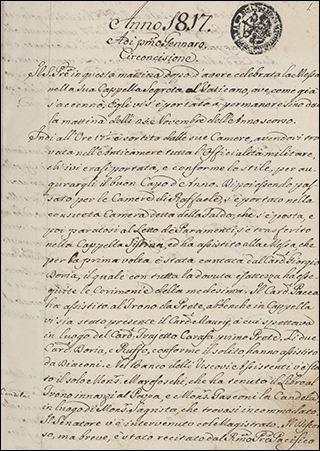 Anno 1817.
Adi pmo Gennaro.
Circoncisione.
in questa mattina dopo d'avere celebrata la Messa
nella Sua Cappella Segreta al Vaticano, ove come già
si accennò Egli vi si è portato a permanere fino da
la mattina delli Novembre dell'Anno scorso.
Indi all'Ore è sortito dalle sue Camere, avendovi tro
vata nell'Anticamera tutta l'Officialità militare,
che ivi erasi portata, e conforme lo stile, per au
gurargli il buon Capo d'Anno. Di poi essendo pas
sato per le Camere di Raffaele, si è portato nella
consueta Camera detta della Falda, che si è posta, e
poi paratosi al Letto de Paramenti, si è trasferito
nella Cappella Sistina, ed ha assistito alla Messa, che
per la prima volta è stata cantata dal Card Giorgio
Doria, il quale con tutta la dovuta esattezza ha ese
guite le Cerimonie della medesima. Il Card Pacca
ha assistito al Trono da Prete, abbenche in Cappella
vi sia stato presente il Card Maury, a cui spettava
in luogo del Card Trajetto Carafa primo Prete. Li due
Card Doria, e Ruffo, conforme il solito hanno assistito
da Diaconi. Nel banco delli Vescovi assistenti v'è sta
to il solo Mons Marefoschi, che ha tenuto il Libro al
Trono innanzi al Papa, e Mons la Candela
in luogo di Mons Sagrista, che trovasi incommodato.
Il Senatore v'è intervenuto col Magistrato. Il discor
so, ma breve, è stato recitato dal Pacifico